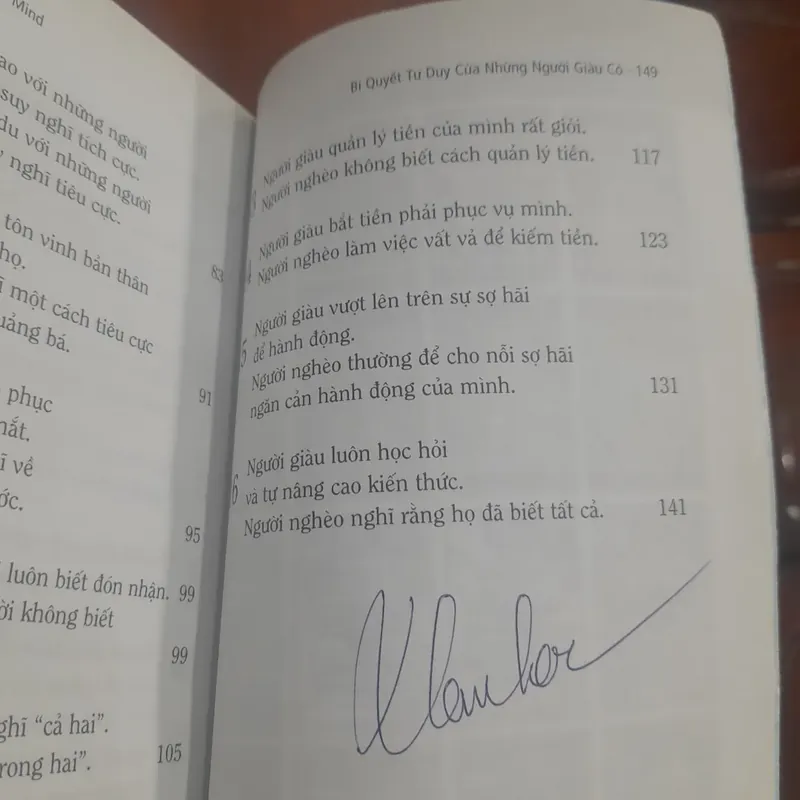 Mind
ao với những người
suy nghĩ tích cực.
du với những người
nghĩ tiêu cực.
tôn vinh bản thân
họ. 83
một cách tiêu cực
uảng bá. 91
phục
mắt.
ĩ về
ớc. 95
luôn biết đón nhận. 99
ời không biết
99
ghĩ “cả hai”.
rong hai”. 105
Bí Quyết Tư Duy Của Những Người Giàu Có 149
Người giàu quản lý tiền của mình rất giỏi.
Người nghèo không biết cách quản lý tiền. 117
Người giàu bắt tiền phải phục vụ mình.
Người nghèo làm việc vất vả để kiếm tiền. 123
5 Người giàu vượt lên trên sự sợ hãi
để hành động.
Người nghèo thường để cho nỗi sợ hãi
ngăn cản hành động của mình. 131
6 Người giàu luôn học hỏi
và tự nâng cao kiến thức.
Người nghèo nghĩ rằng họ đã biết tất cả. 141